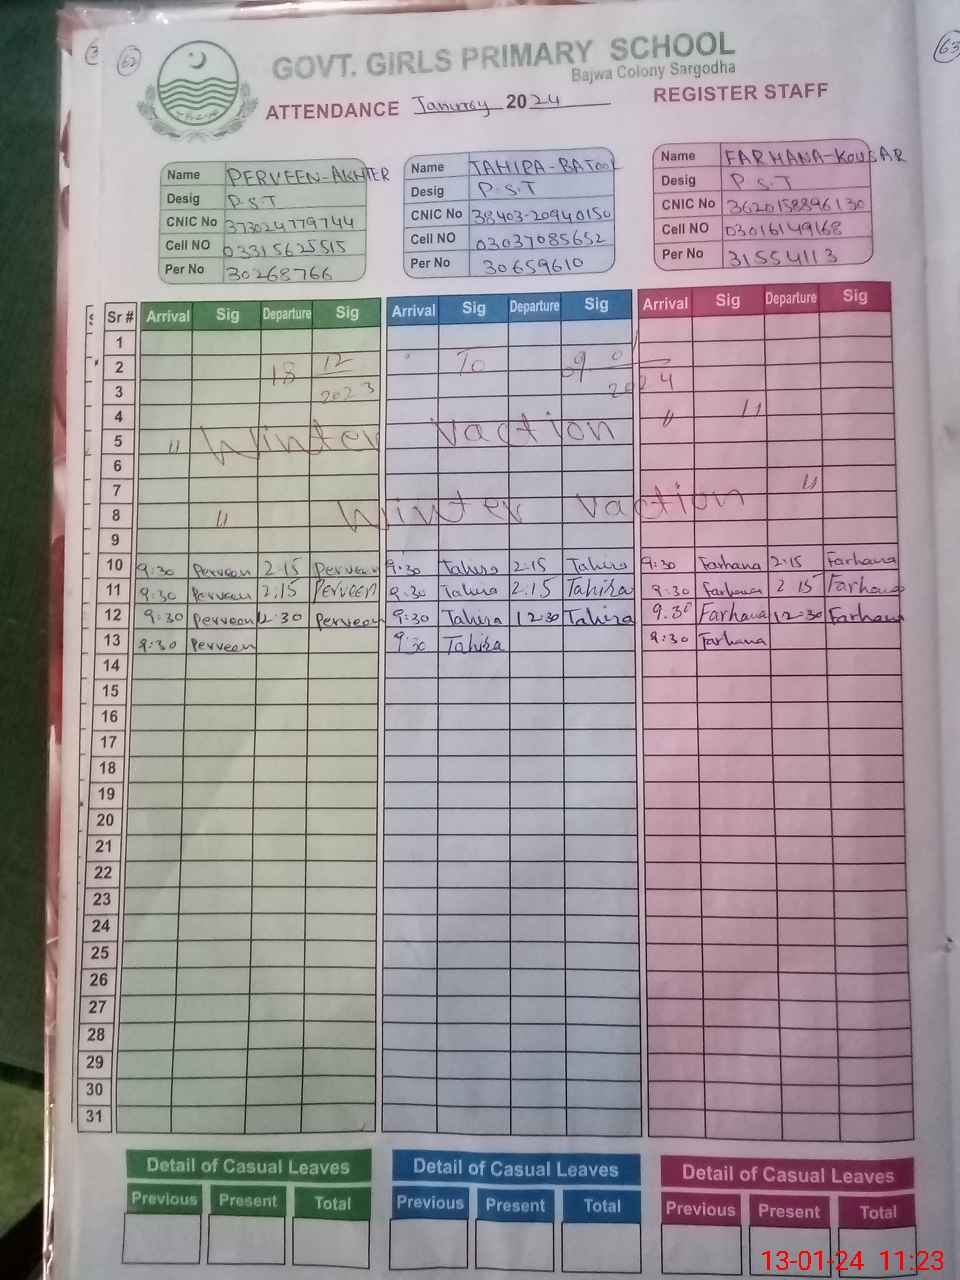 62
63
GOVT. GIRLS PRIMARY SCHOOL
Bajwa Colony Sargodha
ATTENDANCE January 2024 REGISTER STAFF
Name PERVEEN-AKHTER
Desig P.S.T
CNIC No 373024779744
Cell NO 03315625515
Per No 30268766
Name TAHIRA-BATOOL
Desig P.S.T
CNIC No 38403-20940150
Cell NO 03037085652
Per No 30659610
Name FARHANA-KOUSAR
Desig P.S.T
CNIC No 3620158896130
Cell NO 03016149168
Per No 31554113
Sr # Arrival Sig Departure Sig Arrival Sig Departure Sig Arrival Sig Departure Sig
1
2 18 12 To 09 01
3 2023 2024
4 " "
5 " Winter vaction
6
7 "
8 " Winter vaction
9
10 9:30 Perveen 2.15 Perveen 9:30 Tahira 2:15 Tahira 9:30 Farhana 2.15 Farhana
11 9:30 Perveen 2.15 Perveen 9:30 Tahira 2:15 Tahira 9:30 Farhana 2 15 Farhana
12 9:30 Perveen 12.30 Perveen 9:30 Tahira 12:30 Tahira 9.30 Farhana 12:30 Farhana
13 9:30 Perveen 9:30 Tahira 9:30 Farhana
14
15
16
17
18
19
20
21
22
23
24
25
26
27
28
29
30
31
Detail of Casual Leaves Detail of Casual Leaves Detail of Casual Leaves
Previous Present Total Previous Present Total Previous Present Total
13-01-24 11:23